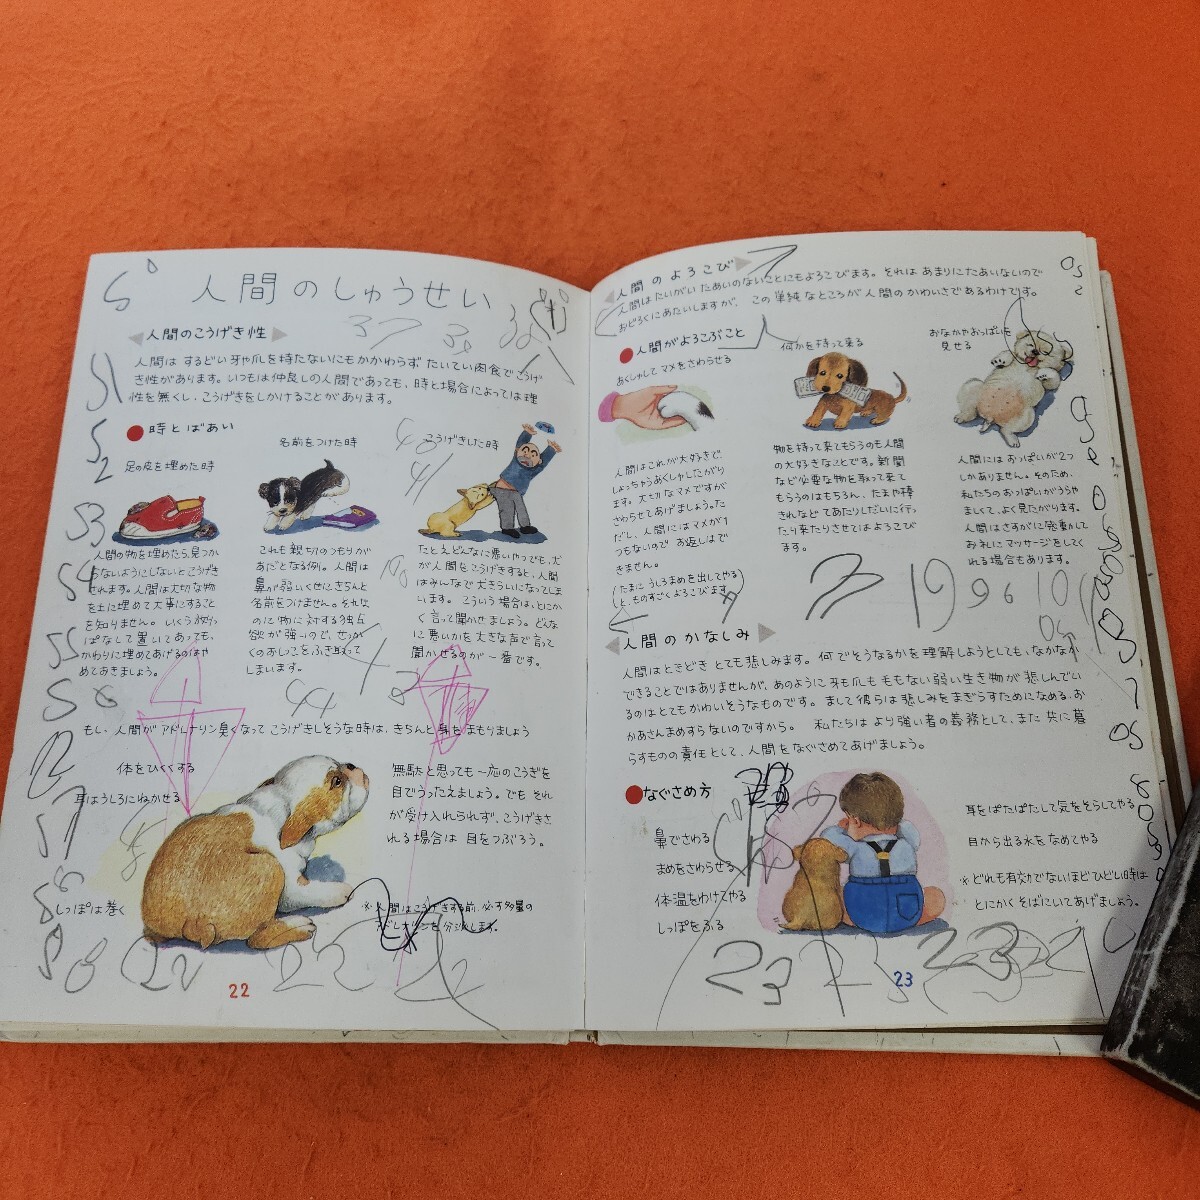 人間のしゅうせい
人間のこうげき性
人間は するどい牙や爪を持たないにもかかわらず たいてい肉食でこうげ
き性があります。いつもは仲良しの人間であっても、時と場合によっては理
性を無くし、こうげきをしかけることがあります。
時とばあい
足の皮を埋めた時
人間の物を埋めたら、見つか
らないようにしないとこうげき
されます。人間は大切な物
を土に埋めて大事にすること
を知りません。いくら放り
ぱなして置いてあっても、
かわりに埋めてあげるのはや
めておきましょう。
名前をつけた時
これも親切のつもりが
あだとなる例。人間は
鼻が弱いくせにきちんと
名前をつけません。それな
のに物に対する独占
欲が強いので、せっか
くのおしっこをふき取って
しまいます。
こうげきした時
たとえどんなに悪いやつでも、犬
が人間をこうげきすると、人間
はみんなで犬をきらいになってしま
います。こういう場合は、とにか
く言って聞かせましょう。どんな
に悪いかを大きな声で言って
聞かせるのが一番です。
もし、人間がアドレナリン臭くなって こうげきしそうな時は、きちんと身をまもりましょう
体をひくくする
耳はうしろにねかせる
しっぽは巻く
無駄と思っても一応のこうぎを
目でうったえましょう。でも それ
が受け入れられず、こうげきさ
れる場合は 目をつぶろう。
※人間はこうげきする前、必ず多量の
アドレナリンを分泌します。
22
人間のよろこび
人間はたいがい たあいのないことにもよろこびます。それは あまりにたあいないので
おどろくにあたいしますが、 この単純なところが人間のかわいさであるわけです。
人間がよろこぶこと
あくしゃして マメをさわらせる
人間はこれが大好きで、
しょっちゅうあくしゃしたがり
ます。大切なマメですが
さわらせてあげましょう。た
だし、人間にはマメが1
つもないので お返しはで
きません。
(たまに うしろまめを出してやる
と、ものすごくよろこびます)
何かを持って来る
物を持って来てもらうのも人間
の大好きなことです。新聞
など必要な物を取って来て
もらうのはもちろん、たまや棒
きれなど てあたりしだいに行っ
たり来たりさせてはよろこび
ます。
おなかやおっぱいを
見せる
人間には おっぱいが2つ
しかありません。そのため、
私たちのおっぱいがうらや
ましくて、よく見たがります。
人間はさすがに発動して
お礼にマッサージをしてく
れる場合もあります。
人間のかなしみ
人間はときどき とても悲しみます。何でそうなるかを理解しようとしても、なかなか
できることではありませんが、あのように 牙も爪も ももない弱い生き物が 悲しんでい
るのはとてもかわいそうなものです。まして彼らは 悲しみをまぎらすためになめる、お
かあさんまめすらないのですから。 私たちは より強い者の義務として、また 共に暮
らすものの責任として、人間をなぐさめてあげましょう。
なぐさめ方
鼻でさわる
まめをさわらせる
体温をわけてやる
しっぽをふる
耳をぱたぱたして気をそらしてやる
目から出る水を なめてやる
※どれも有効でないほど ひどい時は
とにかく そばにいてあげましょう。
23